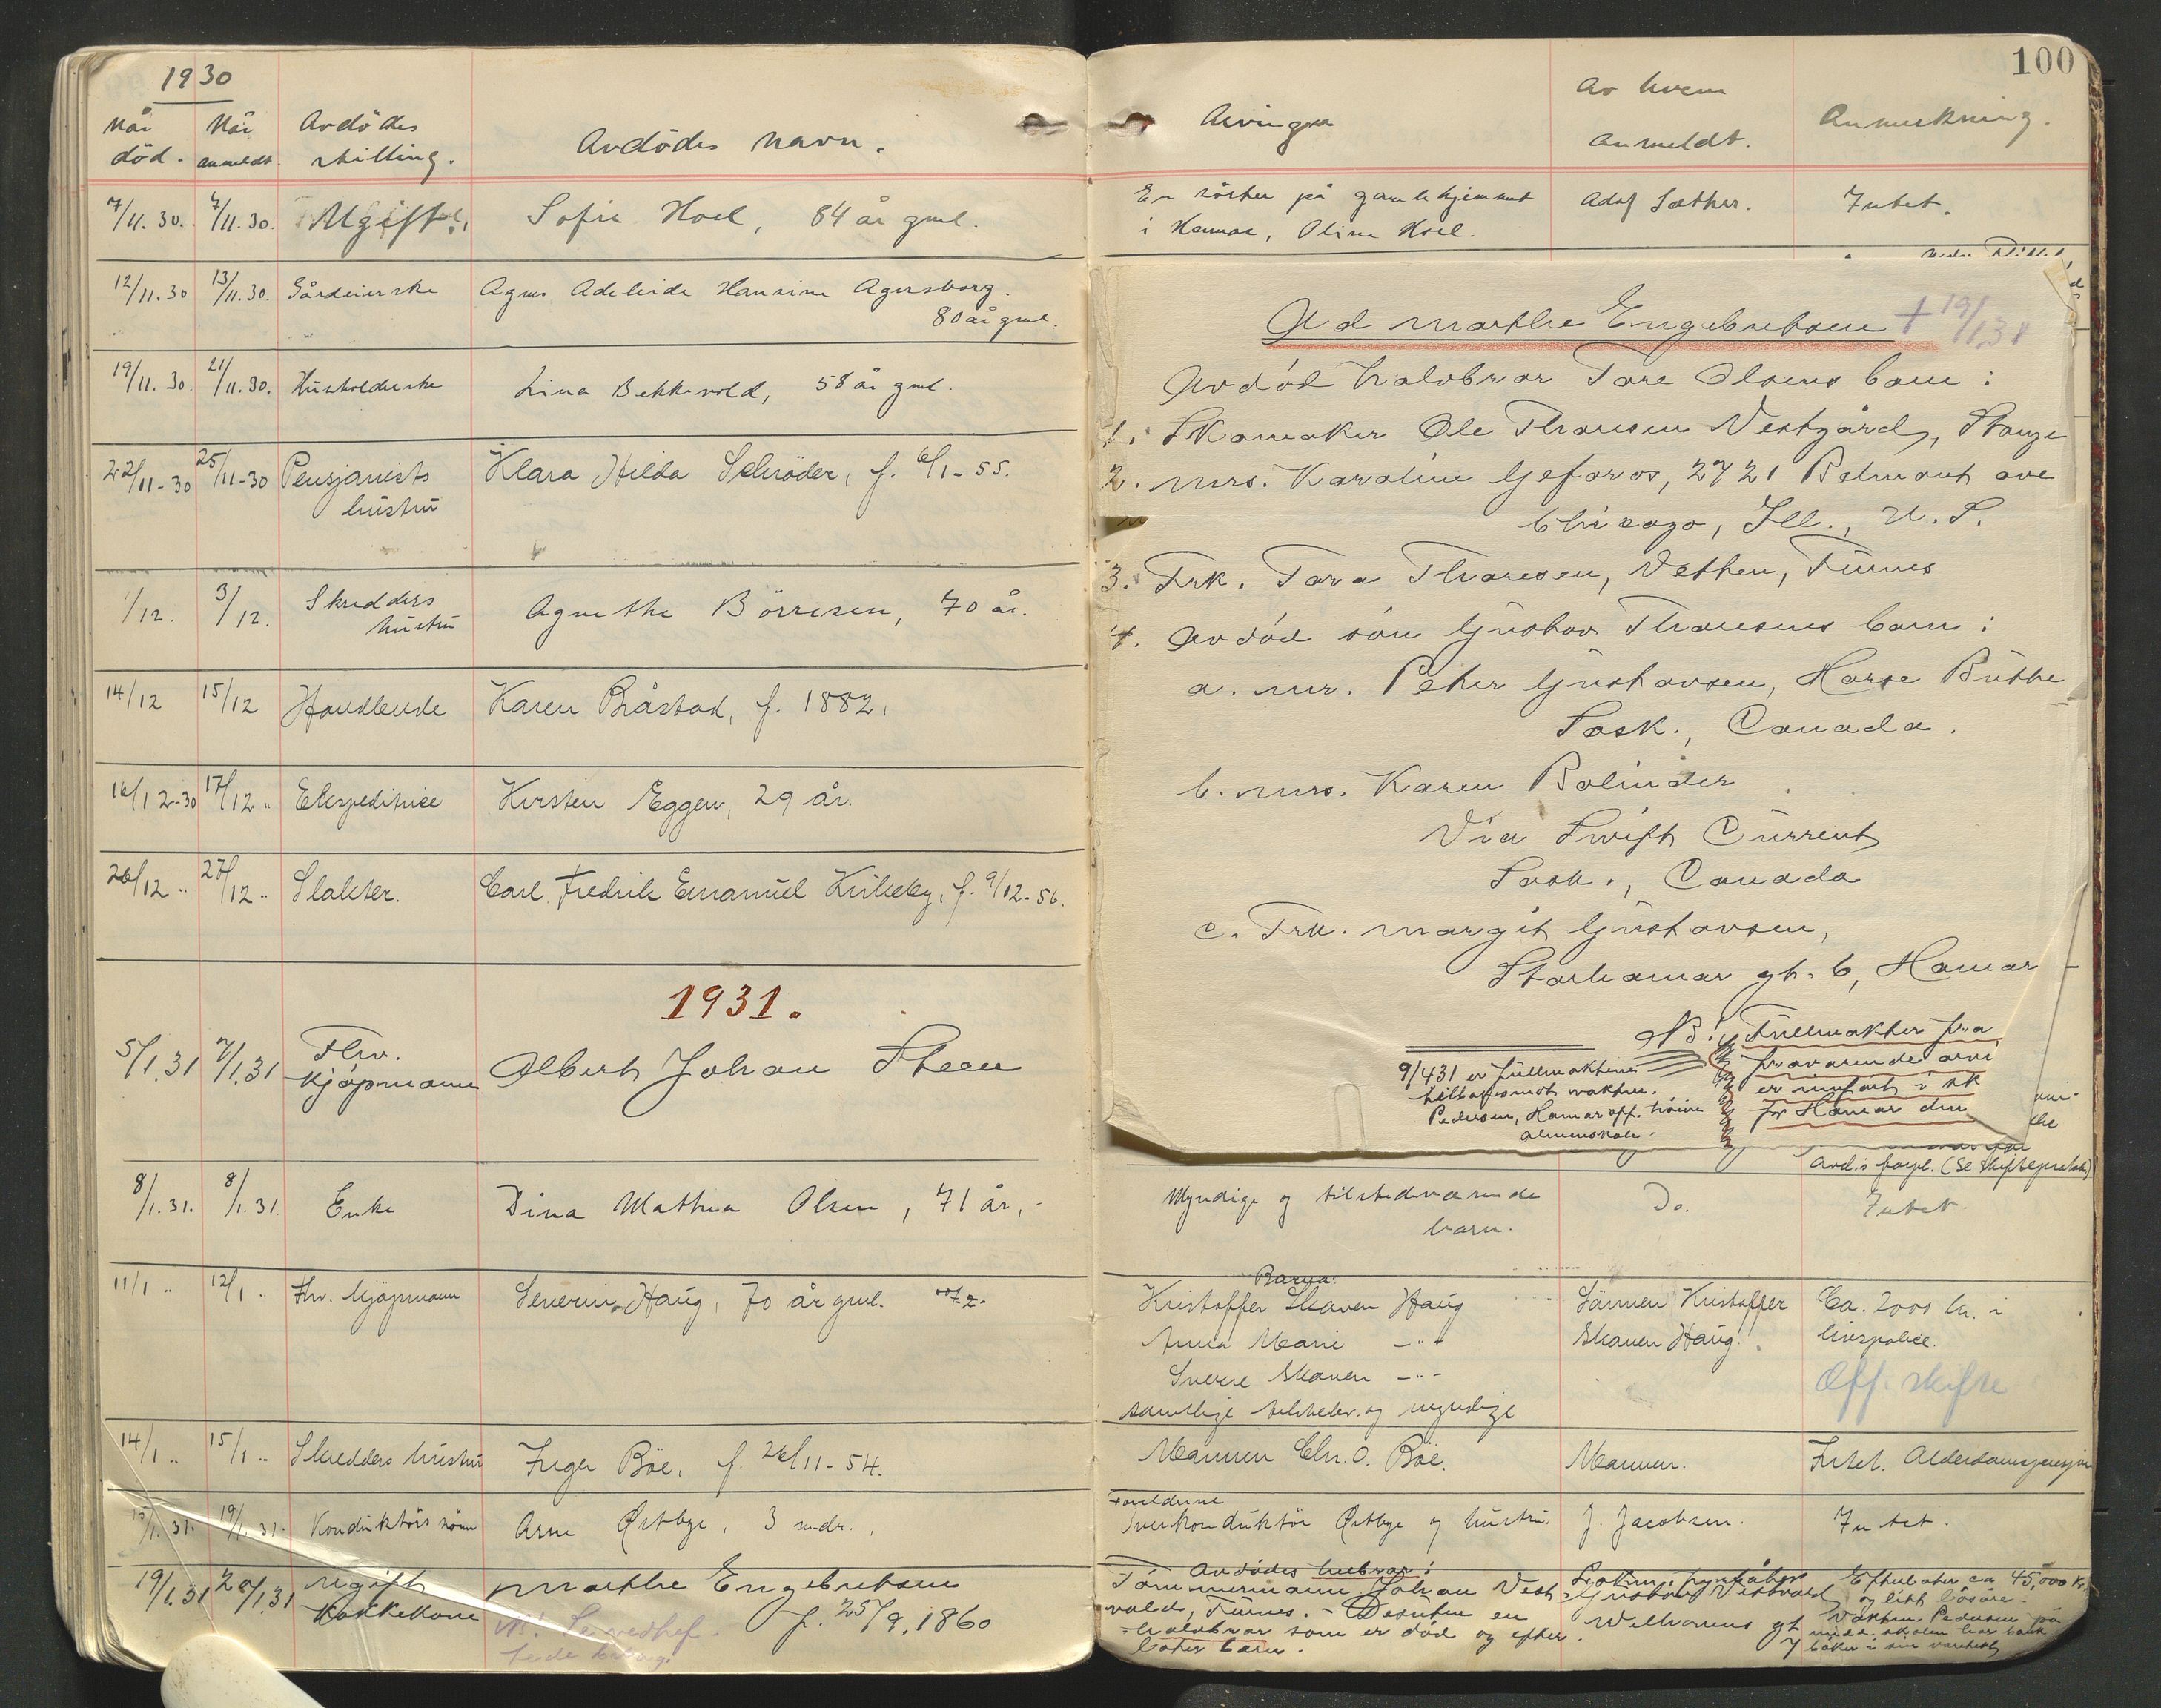 1930
Når død.
Når anmeldt.
Avdödes stilling.
Avdödes navn.
7/11.30. 7/11.30. Ugift. Sofie Hoel, 84 år gml.
12/11.30 13/11.30. Gårdeierske Agnes Adeleide Hansine Agersborg.
80 år gml.
19/11.30. 21/11.30. Husholderske Lina Bekkevold, 58 år gml.
22/11-30 25/11-30 Pensjonists Klara Hilda Schröder, f. 6/1-55.
hustru
1/12. 3/12. Skredders Agnethe Börresen, 70 år.
hustru
14/12 15/12 Handlende Karen Bråstad, f. 1882.
16/12-30 17/12 " Ekspeditrise Kirsten Eggen, 29 år.
26/12 " 27/12 " Slakter. Carl Fredrik Emanuel Kirkeby, f. 9/12-56.
1931.
5/1.31 7/1.31 Fhv. Albert Johan Steen
kjöpmann
8/1.31. 8/1.31. Enke Dina Mathea Olsen, 71 år,-
11/1 " 12/1 " Fhv. kjöpmann Severin Haug, 70 år gml.
14/1 " 15/1 " Skredders hustru Inga Böe, f. 26/11-54.
15/1.31. 19/1.31. Konduktörs sönn Arne Østbye, 3 mdr.,
19/1.31 20/1.31 Ugift Marthe Engebretsen
Kokkekone f. 25/9.1860
100
Arvinger
Av hvem
anmeldt.
Anmerkning.
En söster på gamlehjemmet Adolf Sæther. Intet.
i Hamar, Oline Hoel.
Ad Marthe Engebretsen † 19/1.31
Avdöd halvbror Tore Olsens barn:
1. Skomaker Ole Thoresen Vestgård, Stange
2. Mrs. Karoline Gjefaros, 2721 Belmont ave
Chicago, Ill., U.S.
3. Frk. Tora Thoresen, Vethen, Furnes
4. Avdöd sön Gustav Thoresens barn:
a. Mr. Peter Gustavsen, Horse Butte
Sask., Canada.
b. Mrs. Karen Bolinder
Via Swift Current
Sask., Canada
c. Frk. Margit Gustavsen,
Storhamar gt. 6, Hamar
NB! Fullmakter fra
fraværende arvi
er innfört i sk
for Hamar den
9/4 31 er fullmaktene
tilbakesendt vaktm.
Pedersen, Hamar off. höiere
almenskole.
avd.s forpl. (Se skifteprotok)
Myndige og tilstedeværende Do. Intet.
barn.
Barna:
Kristoffer Skaven Haug Sönnen Kristoffer Ca. 2000 kr. i
Anna Marie -"- Skaven Haug. livspolice.
Sverre Skaven -"- Off. skifte
samtlige tilstedev. og myndige
Mannen Chr. O. Böe. Mannen. Intet. Alderdomspensjon
Foreldrene
Overkonduktör Østbye og hustru. J. Jacobsen. Intet.
Avdödes helbror:
Tömmermann Johan Vest-
vold, Furnes. - Desuten en
halvbror som er död og efter-
later barn.
Lokm. fyrböter
Gustav Vestvold
Wilhamns gt 7
Efterlater ca 45,000 kr.
og litt lösöre.
Vaktm. Pedersen på
midd. skolen har bank-
böker i sin varetekt